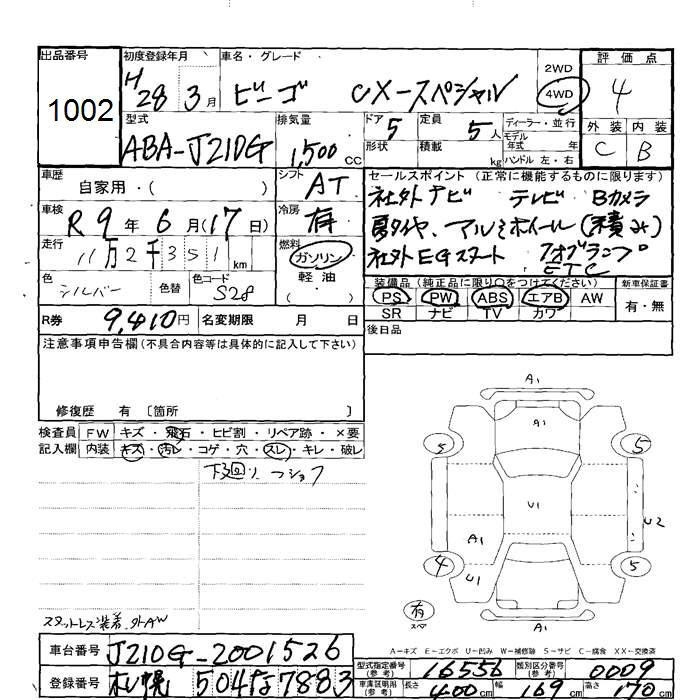 出品番号
1002
初度登録年月
H28 3月
車名・グレード
ビーゴ CX-スペシャル
2WD
4WD
評価点
4
外装 内装
C B
型式
ABA-J210G
排気量
1,500 CC
ドア 5
形状
定員 5人
積載 kg
ディーラー・並行
モデル年式 年式
ハンドル 左・右
車歴
自家用・( )
シフト
AT
車検
R9年6月(17日)
冷房
有
走行
11万2千351km
燃料
ガソリン
軽・油
( )
色
シルバー
色替
色コード
S28
R券 9,410円
名変期限 月 日
セールスポイント(正常に機能するものに限ります)
社外ナビ テレビ Bカメラ
夏タイヤ、アルミホイール(積み)
社外EGスタート フォグランプ
ETC
装備品(純正品に限り○をつけてください)
PS PW ABS エアB AW
SR ナビ TV カワ
新車保証書
有・無
後日品
注意事項申告欄(不具合内容等は具体的に記入して下さい)
修復歴 有〔箇所 〕
検査員 FW キズ・飛石・ヒビ割・リペア跡・×要
記入欄 内装 キズ・汚レ・コゲ・穴・スレ・キレ・破レ
下廻り
A1
A1
5 5
U1
U2
A1
4 5
U1
有
スペア
A1
スタットレス装着、外AW
A－キズ E－エクボ U－凹み W－補修跡 S－サビ C－腐食 XX－交換済
車台番号 J210G-2001526
登録番号 札幌 504 な 7883
型式指定番号(参考) 16556
類別区分番号(参考) 0009
車庫証明用(参考) 長さ 400cm 幅 169cm 高さ 170cm